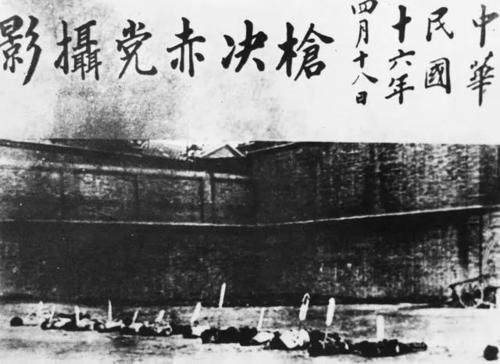 中華
民國
十六年
四月十八日
槍决赤党攝影